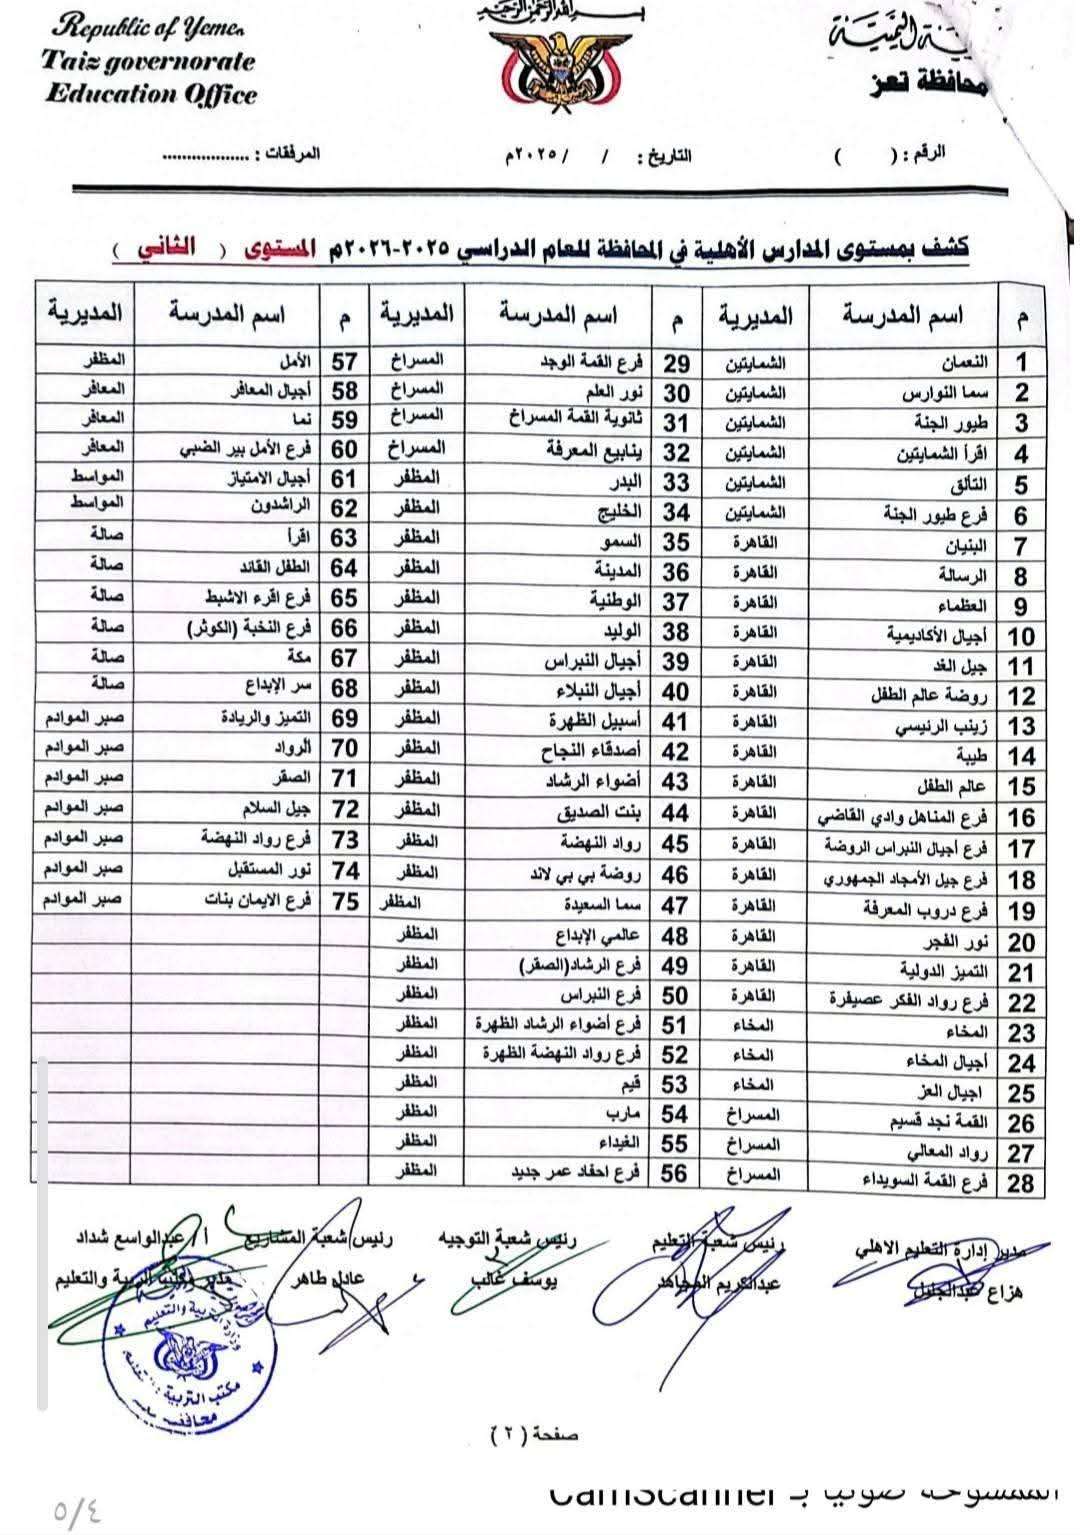 Republic of Yemen
Taiz governorate
Education Office
بسم الله الرحمن الرحيم
اليمنية
محافظة تعز
الرقم : ( )
التاريخ : / / ٢٠٢٥م
المرفقات : ..................
كشف بمستوى المدارس الأهلية في المحافظة للعام الدراسي ٢٠٢٥-٢٠٢٦م المستوى ( الثاني )
م اسم المدرسة المديرية م اسم المدرسة المديرية م اسم المدرسة المديرية
1 النعمان الشمايتين 29 فرع القمة الوجد المسراخ 57 الأمل المظفر
2 سما النوارس الشمايتين 30 نور العلم المسراخ 58 أجيال المعافر المعافر
3 طيور الجنة الشمايتين 31 ثانوية القمة المسراخ المسراخ 59 نما المعافر
4 اقرأ الشمايتين الشمايتين 32 ينابيع المعرفة المسراخ 60 فرع الأمل بير الضبي المعافر
5 التألق الشمايتين 33 البدر المظفر 61 أجيال الامتياز المواسط
6 فرع طيور الجنة الشمايتين 34 الخليج المظفر 62 الراشدون المواسط
7 البنيان القاهرة 35 السمو المظفر 63 اقرأ صالة
8 الرسالة القاهرة 36 المدينة المظفر 64 الطفل القائد صالة
9 العظماء القاهرة 37 الوطنية المظفر 65 فرع اقرء الاشبط صالة
10 أجيال الأكاديمية القاهرة 38 الوليد المظفر 66 فرع النخبة (الكوثر) صالة
11 جيل الغد القاهرة 39 أجيال النبراس المظفر 67 مكة صالة
12 روضة عالم الطفل القاهرة 40 أجيال النبلاء المظفر 68 سر الإبداع صالة
13 زينب الرئيسي القاهرة 41 أسبيل الظهرة المظفر 69 التميز والريادة صبر الموادم
14 طيبة القاهرة 42 أصدقاء النجاح المظفر 70 الرواد صبر الموادم
15 عالم الطفل القاهرة 43 أضواء الرشاد المظفر 71 الصقر صبر الموادم
16 فرع المناهل وادي القاضي القاهرة 44 بنت الصديق المظفر 72 جيل السلام صبر الموادم
17 فرع أجيال النبراس الروضة القاهرة 45 رواد النهضة المظفر 73 فرع رواد النهضة صبر الموادم
18 فرع جيل الأمجاد الجمهوري القاهرة 46 روضة بي بي لاند المظفر 74 نور المستقبل صبر الموادم
19 فرع دروب المعرفة القاهرة 47 سما السعيدة المظفر 75 فرع الايمان بنات صبر الموادم
20 نور الفجر القاهرة 48 عالمي الإبداع المظفر
21 التميز الدولية القاهرة 49 فرع الرشاد(الصقر) المظفر
22 فرع رواد الفكر عصيفرة القاهرة 50 فرع النبراس المظفر
23 المخاء المخاء 51 فرع أضواء الرشاد الظهرة المظفر
24 أجيال المخاء المخاء 52 فرع رواد النهضة الظهرة المظفر
25 اجيال العز المخاء 53 قيم المظفر
26 القمة نجد قسيم المسراخ 54 مارب المظفر
27 رواد المعالي المسراخ 55 الغيداء المظفر
28 فرع القمة السويداء المسراخ 56 فرع احفاد عمر جديد المظفر
مدير إدارة التعليم الاهلي رئيس شعبة التعليم رئيس شعبة التوجيه رئيس شعبة المشاريع أ/ عبدالواسع شداد
هزاع عبدالجليل عبدالكريم المجاهد يوسف غالب عادل طاهر مدير مكتب التربية والتعليم
وزارة التربية والتعليم
مكتب التربية
صفحة (٢)
الممسوحة ضوئيا بـ CamScanner
٥/٤